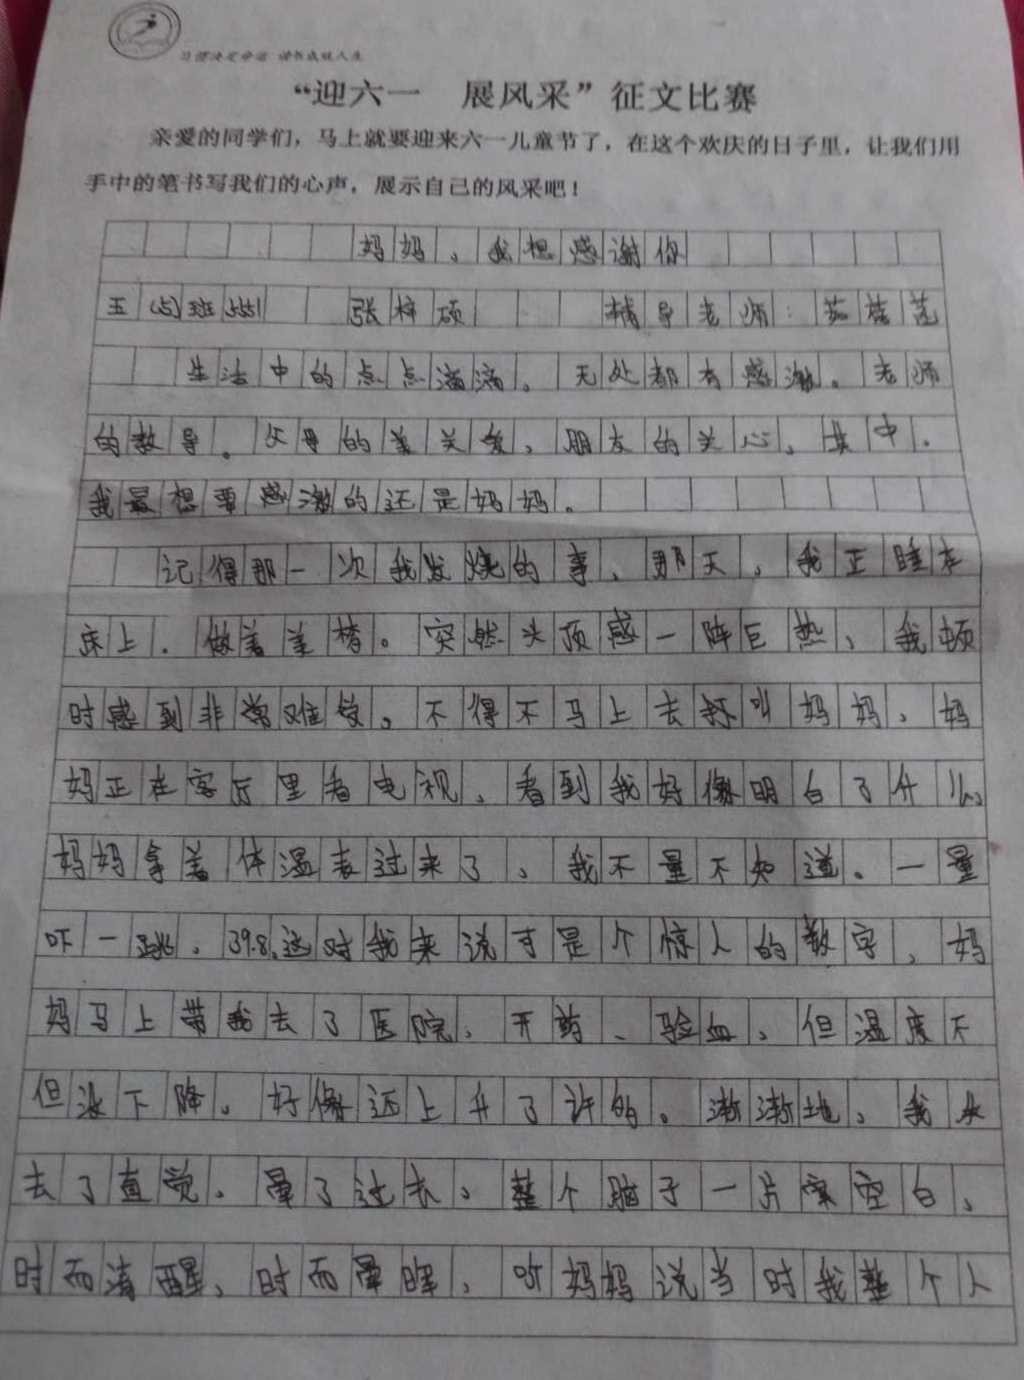 习惯决定命运 读书成就人生
“迎六一　展风采”征文比赛
亲爱的同学们，马上就要迎来六一儿童节了，在这个欢庆的日子里，让我们用
手中的笔书写我们的心声，展示自己的风采吧！
妈妈，我想感谢你
五（5）班 5551 张梓硕 辅导老师：茹桂莲
生活中的点点滴滴。无处都有感激。老师
的教导。父母的关爱，朋友的关心，其中.
我最想要感激的还是妈妈。
记得那一次我发烧的事、那天，我正睡在
床上.做着美梦。突然头顶感一阵巨热、我顿
时感到非常难受。不得不马上去呼叫妈妈、妈
妈正在客厅里看电视、看到我好像明白了什么、
妈妈拿着体温表过来了，我不量不知道。一量
吓一跳，39.8,这对我来说可是个惊人的数字，妈
妈马上带我去了医院，开药、验血，但温度不
但没下降。好像还上升了许的。渐渐地，我失
去了直觉.晕了过去，整个脑子一片空白、
时而清醒、时而晕眩，听妈妈说当时我整个人